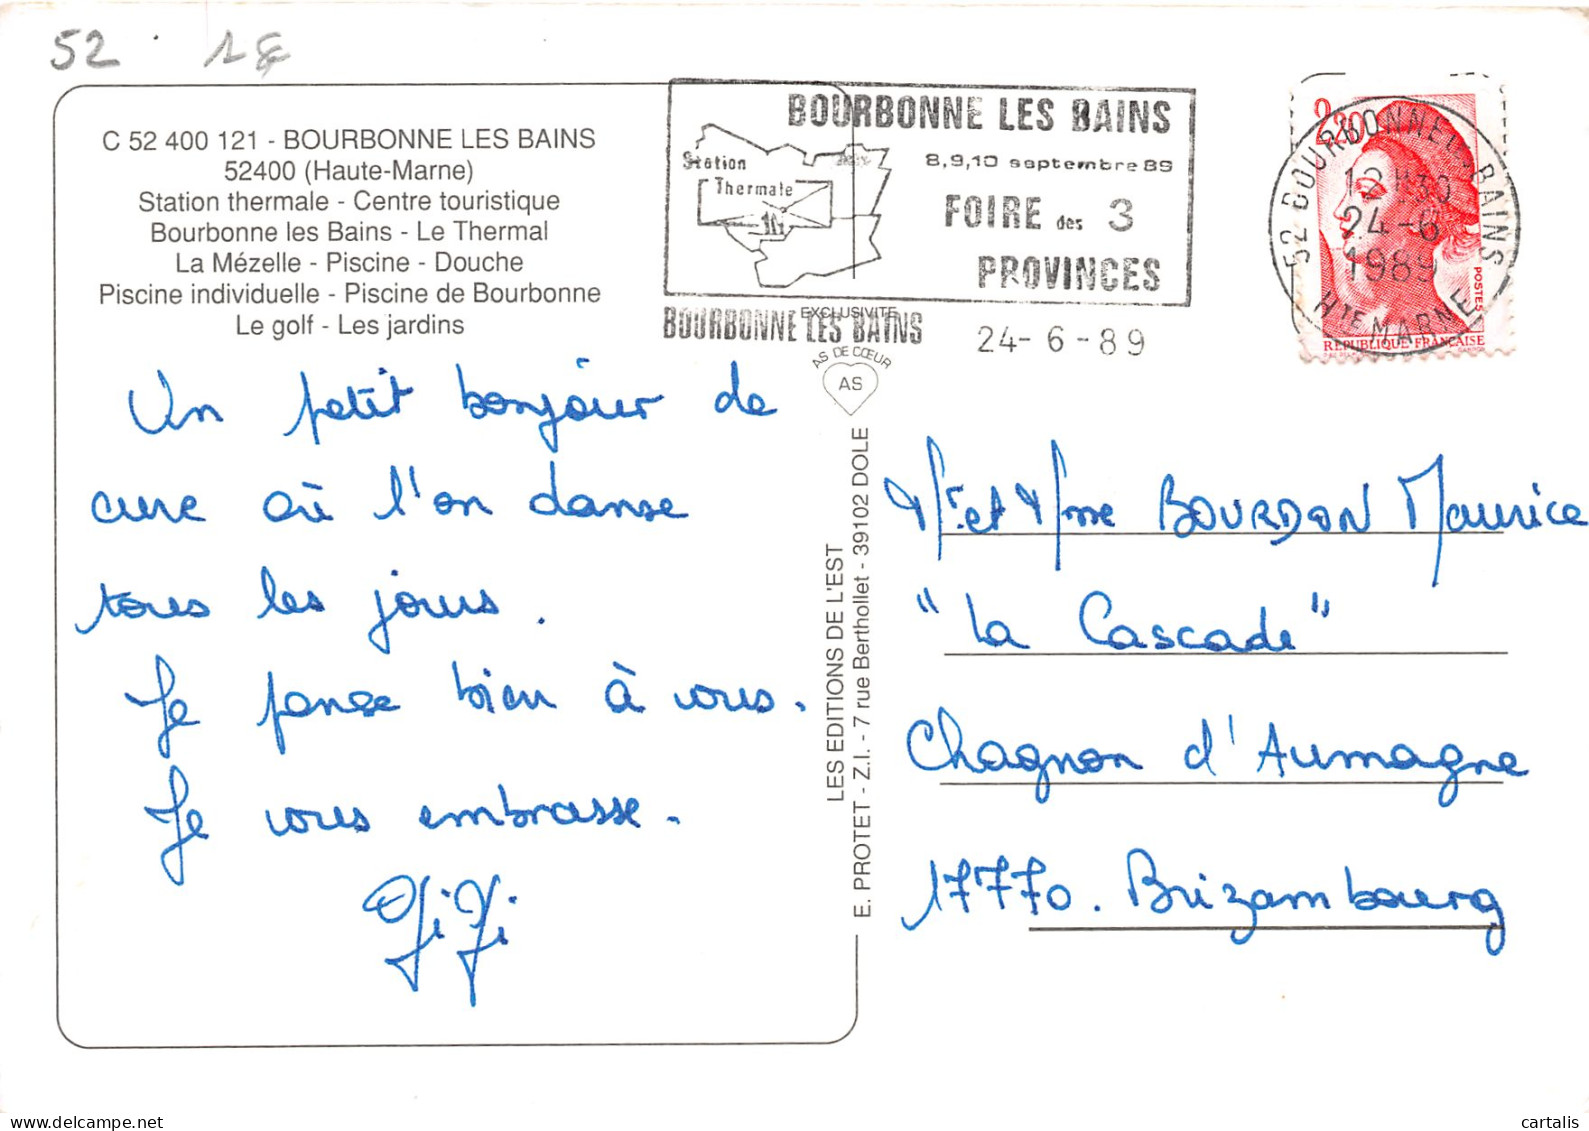 52 1€
C 52 400 121 - BOURBONNE LES BAINS
52400 (Haute-Marne)
Station thermale - Centre touristique
Bourbonne les Bains - Le Thermal
La Mézelle - Piscine - Douche
Piscine individuelle - Piscine de Bourbonne
Le golf - Les jardins
BOURBONNE LES BAINS
Station
Thermale
8,9,10 septembre 89
FOIRE des 3
PROVINCES
BOURBONNE LES BAINS
24-6-89
2,20
POSTES
REPUBLIQUE FRANÇAISE
52 BOURBONNE L. BAINS
12H30
24-6
1989
HTE MARNE
EXCLUSIVITE
AS DE CŒUR
AS
LES EDITIONS DE L'EST
E. PROTET - Z.I. - 7 rue Berthollet - 39102 DOLE
Un petit bonjour de
cure où l'on danse
tous les jours.
Je pense bien à vous.
Je vous embrasse.
GiGi
Mr et Mme BOURDON Maurice
"La Cascade"
Chagnon d'Aumagne
17770. Brizambourg
www.delcampe.net
cartalis